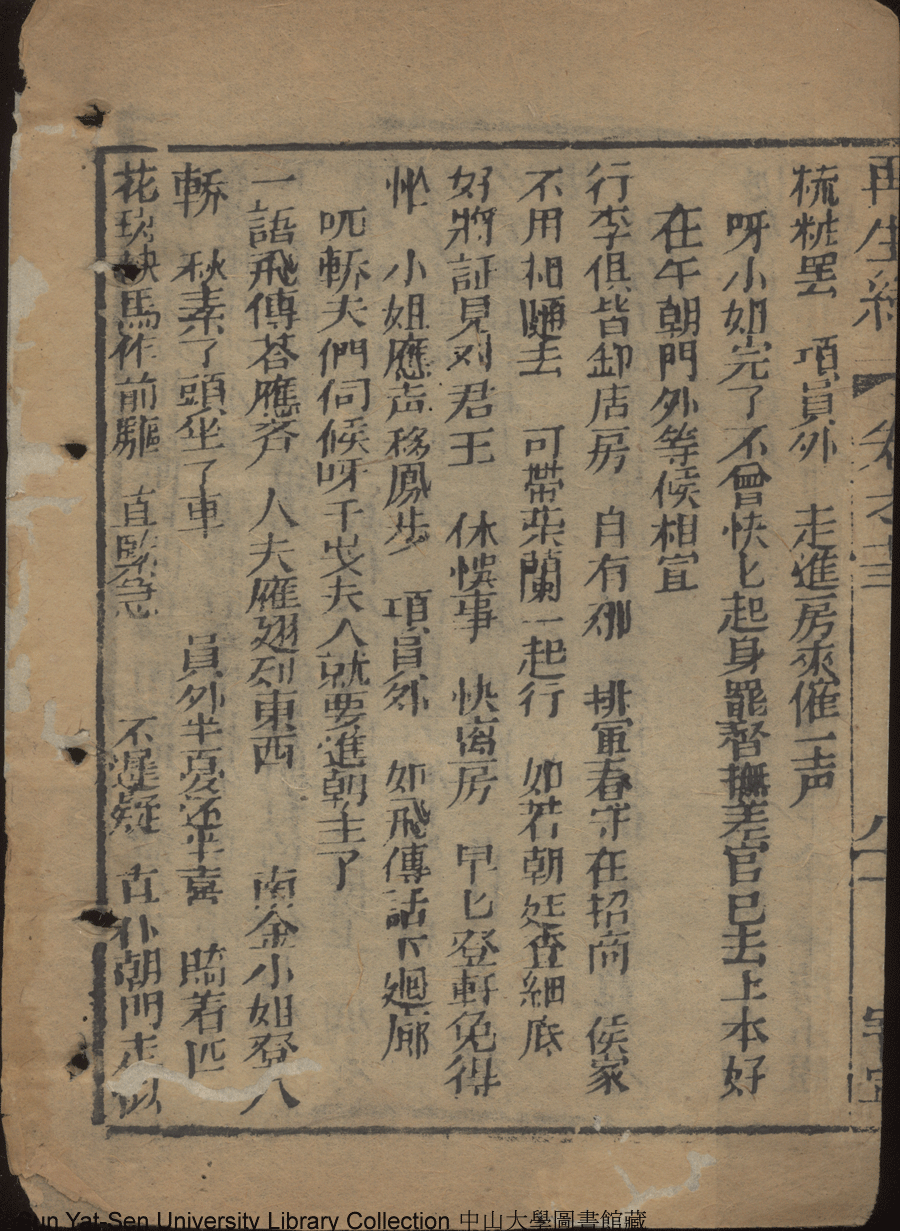 再生緣 卷之
梳粧罷 項員外 走進房來催一声
呀小姐完了不曾快匕起身罷督撫差官已去上本好
在午朝門外等候相宜
行李俱皆卸店房 自有 排軍春守在招商 侯家
不用相隨去 可帶柴蘭一起行 如若朝廷查細底
好將証見对君王 休悮事 快离房 早匕登軒免得
忙 小姐應声移鳳步 項員外 如飛傳話下廻廊
呃轎夫們伺候呀千歲夫人就要進朝主了
一語飛傳荅應齐 人夫雁翅列東西 南金小姐登八
轎 秋素了頭坐了車 員外半憂还半喜 騎着匹
花 馬作前驅 直緊急 不遲疑 直扑朝門走似
Sun Yat-Sen University Library Collection 中山大學圖書館藏